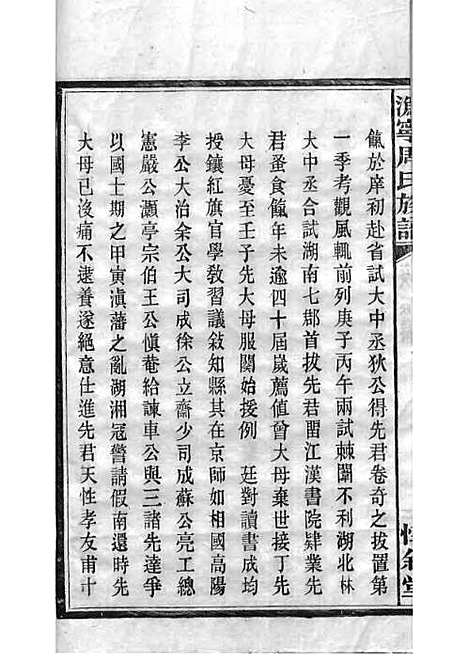 餼於庠初赴省試大中丞狄公得先君卷奇之拔置第
一季考觀風輒前列庚子丙午兩試棘闈不利湖北林
大中丞合試湖南七郡首拔先君畱江漢書院肄業先
君蚤食餼年未逾四十屆歲薦值曾大母棄世接丁先
大母憂至壬子先大母服闋始授例 廷對讀書成均
授鑲紅旗官學敎習議敘知縣其在京師如保國高陽
李公大治余公大司成徐公立齋少司成蘇公亮工總
憲嚴公灝亭宗伯王公愼菴給諫車公與三諸先達爭
以國士期之甲寅滇藩之亂湖湘冦警請假南還時先
大母已沒痛不逮養遂絕意仕進先君天性孝友甫十
周氏族譜